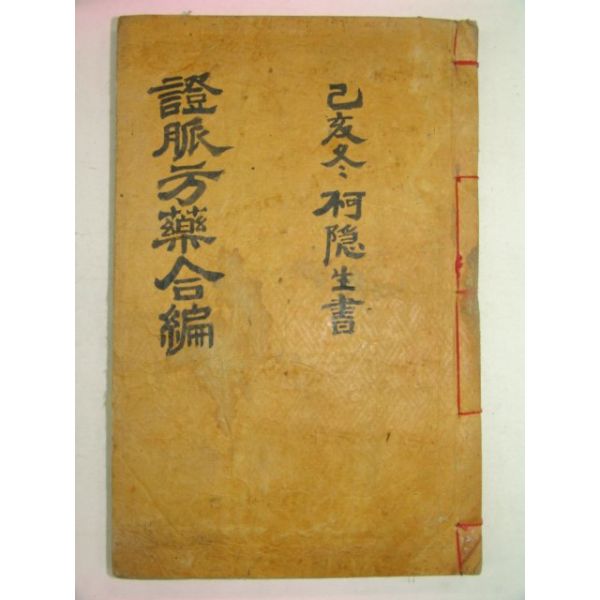 己亥冬柯隐生書
證脈方藥合編